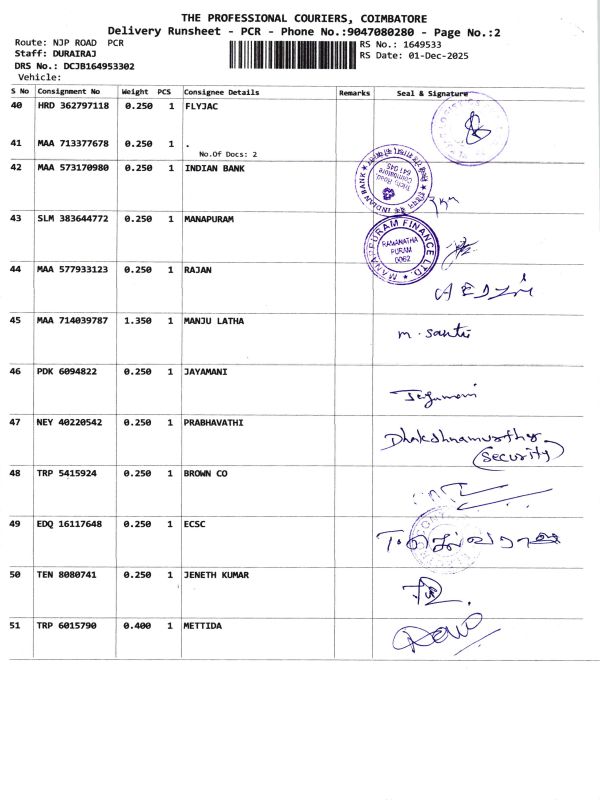 THE PROFESSIONAL COURIERS, COIMBATORE
Delivery Runsheet - PCR - Phone No.:9047080280 - Page No.:2
Route: NJP ROAD PCR
RS No.: 1649533
Staff: DURAIRAJ
RS Date: 01-Dec-2025
DRS No.: DCJB164953302
Vehicle:
S No Consignment No Weight PCS Consignee Details Remarks Seal & Signature
40 HRD 362797118 0.250 1 FLYJAC
41 MAA 713377678 0.250 1 .
No.Of Docs: 2
42 MAA 573170980 0.250 1 INDIAN BANK
INDIAN BANK
Trichy Road
Coimbatore
641 045
43 SLM 383644772 0.250 1 MANAPURAM
MANAPPURAM FINANCE LTD.
RAMANATHA
PURAM
0062
44 MAA 577933123 0.250 1 RAJAN
45 MAA 714039787 1.350 1 MANJU LATHA
m. santi
46 PDK 6094822 0.250 1 JAYAMANI
Jeyamani
47 NEY 40220542 0.250 1 PRABHAVATHI
Dhakshnamurthy
(Security)
48 TRP 5415924 0.250 1 BROWN CO
49 EDQ 16117648 0.250 1 ECSC
50 TEN 8080741 0.250 1 JENETH KUMAR
51 TRP 6015790 0.400 1 METTIDA